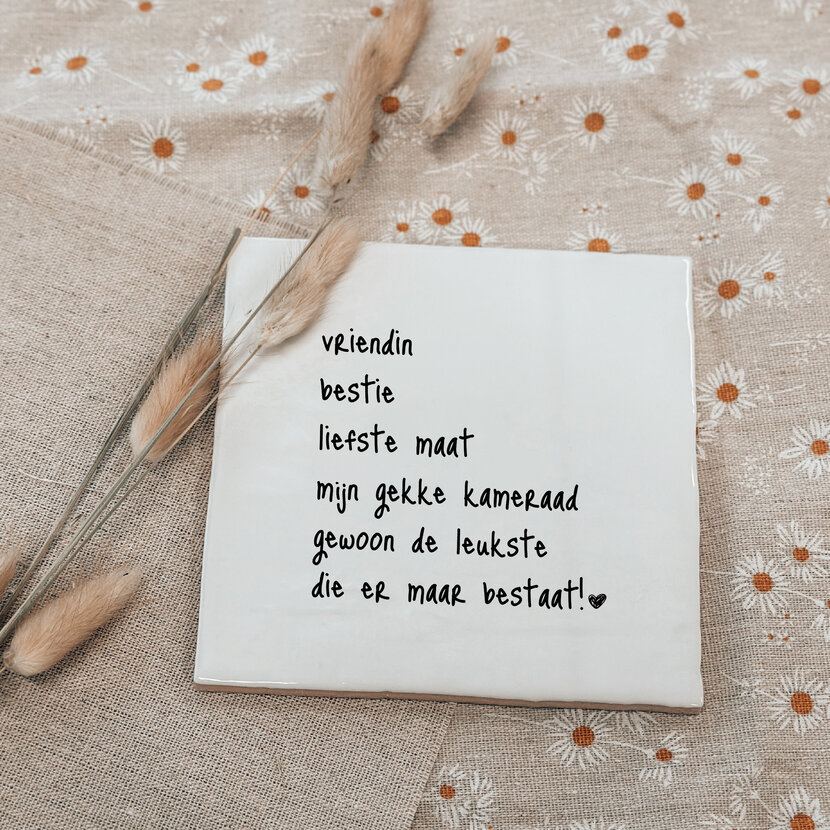 vriendin
bestie
liefste maat
mijn gekke kameraad
gewoon de leukste
die er maar bestaat!